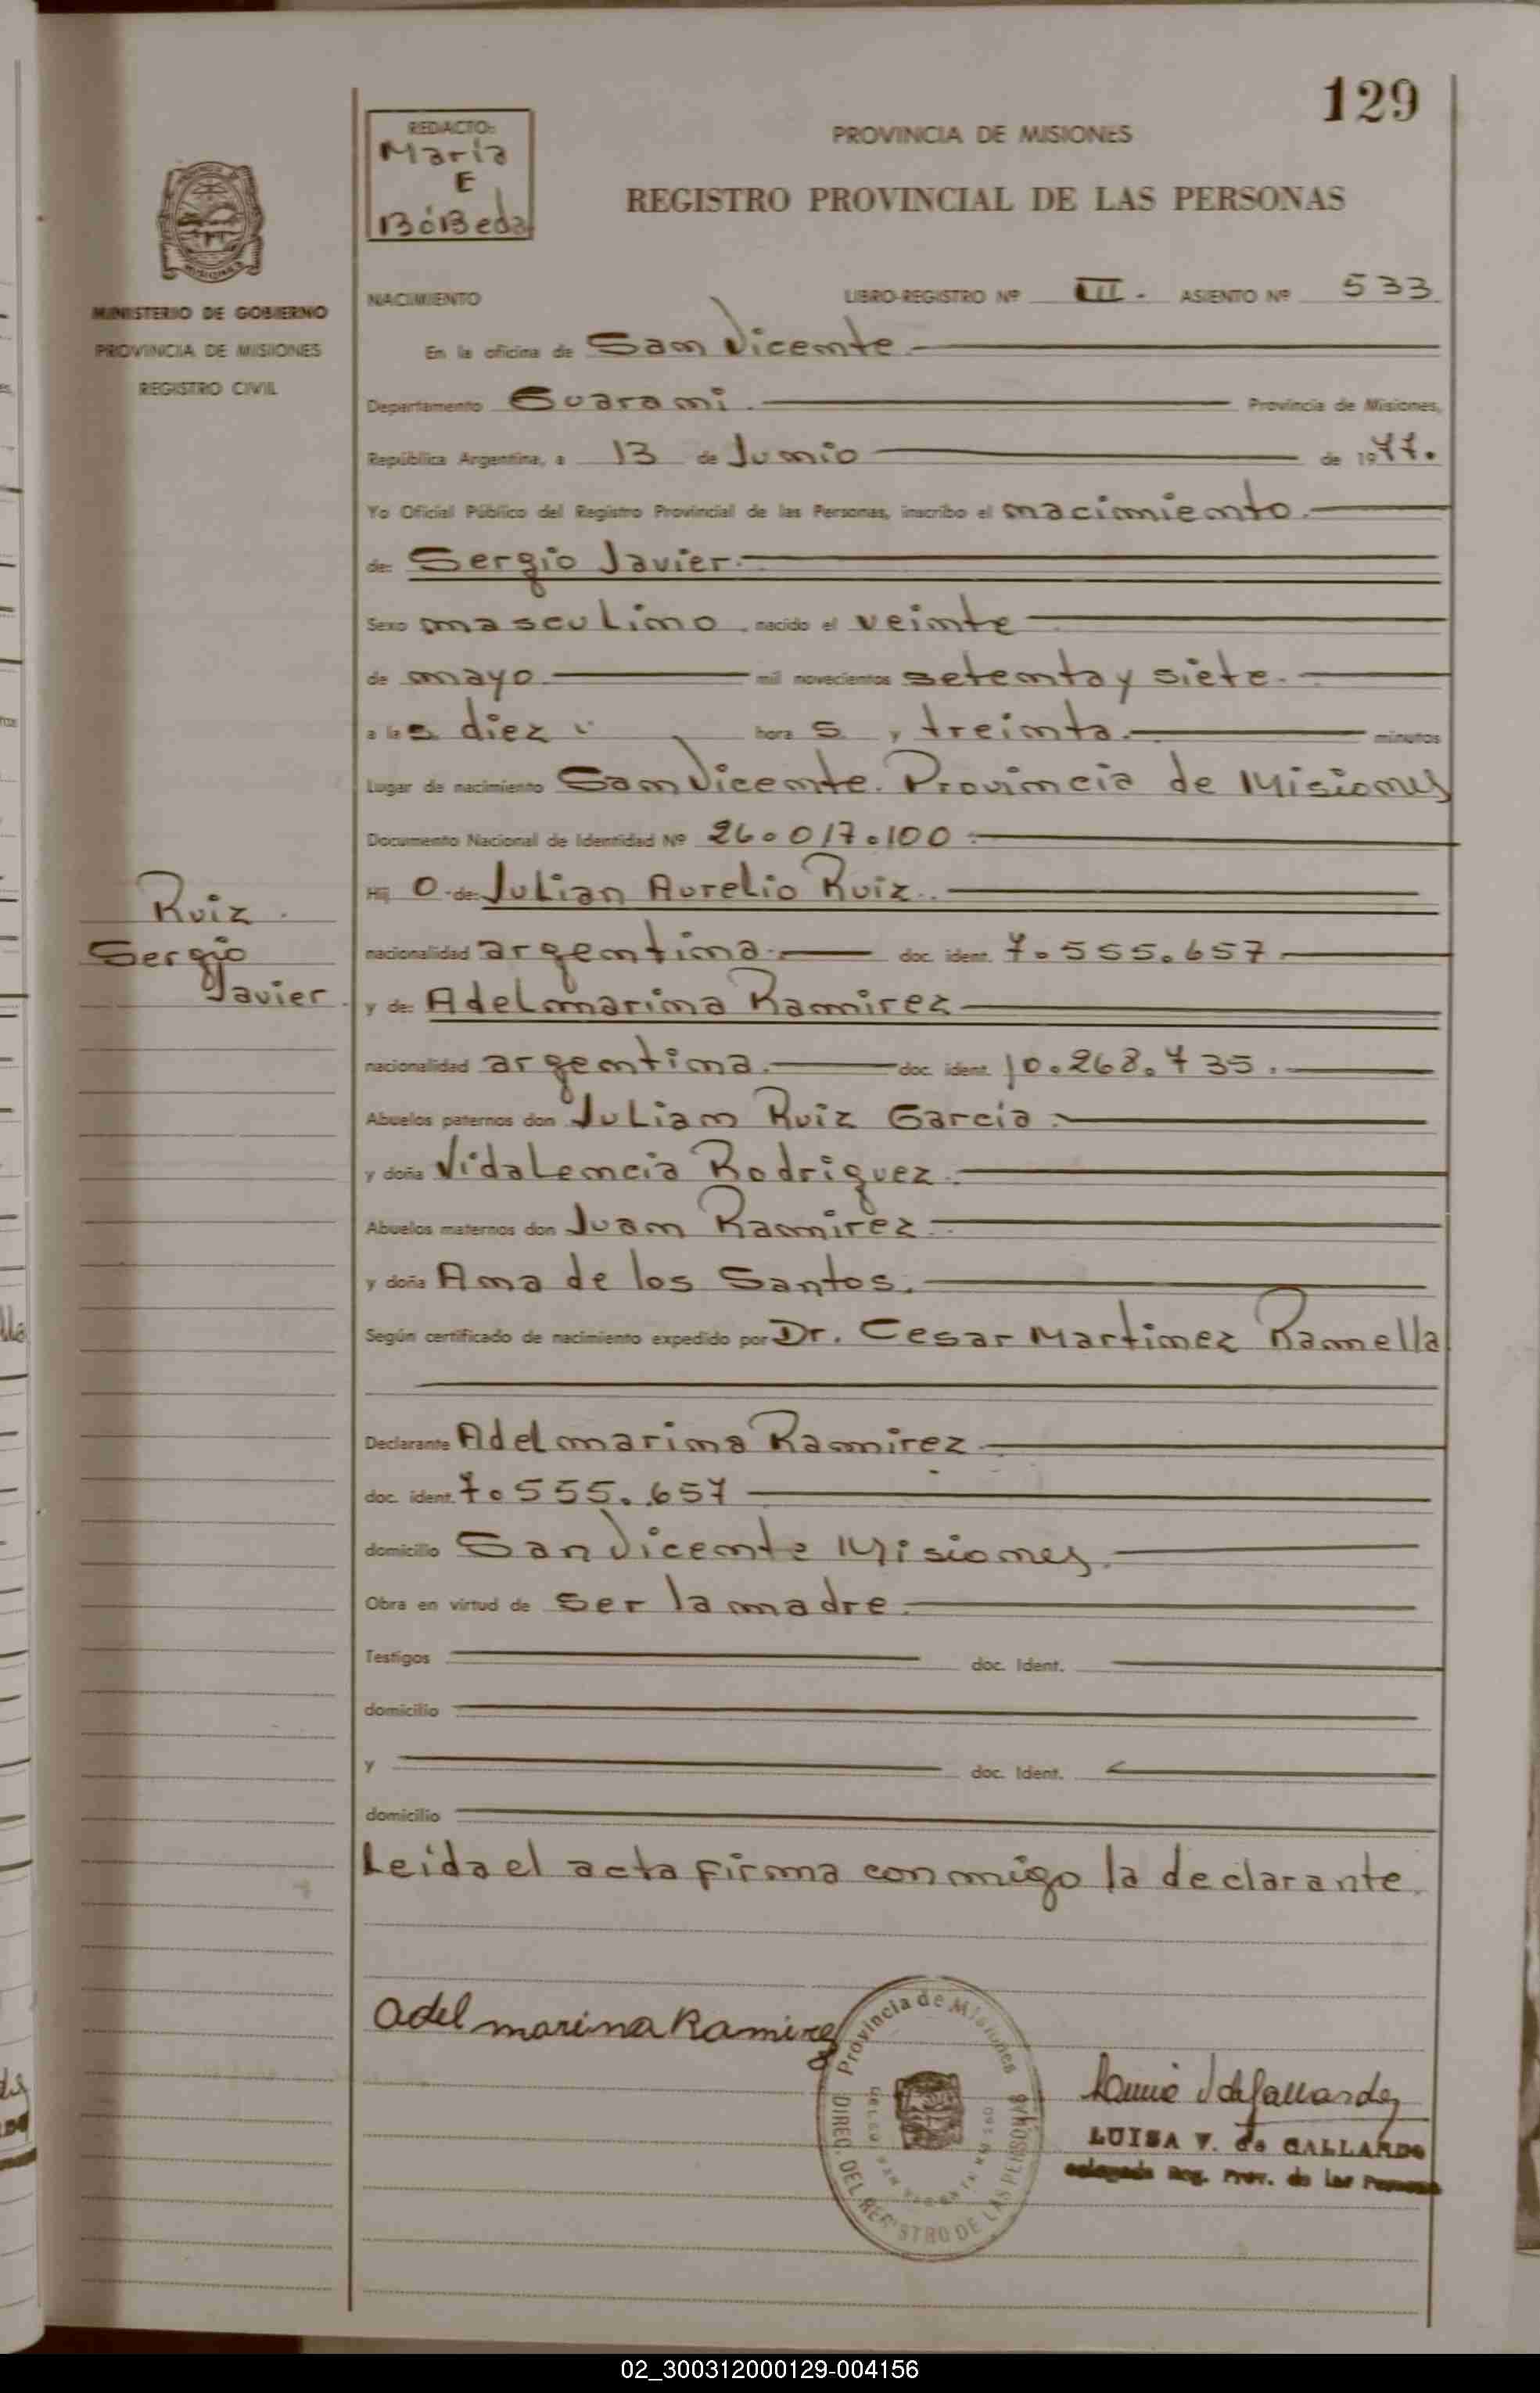 129
REDACTO:
Maria
E
BóBeda
PROVINCIA DE MISIONES
REGISTRO PROVINCIAL DE LAS PERSONAS
MISIONES
MINISTERIO DE GOBIERNO
PROVINCIA DE MISIONES
REGISTRO CIVIL
NACIMIENTO LIBRO-REGISTRO Nº III. ASIENTO Nº 533
En la oficina de San Vicente.
Departamento Guarani. Provincia de Misiones,
República Argentina, a 13 de Junio de 1977.
Yo Oficial Público del Registro Provincial de las Personas, inscribo el nacimiento.
de: Sergio Javier.
Sexo masculino, nacido el veinte
de mayo mil novecientos setenta y siete.
a las diez hora s y treinta. minutos
Lugar de nacimiento San Vicente. Provincia de Misiones
Documento Nacional de Identidad Nº 26.017.100.
Hij o de: Julian Aurelio Ruiz.
nacionalidad argentina. doc. ident. 7.555.657
y de: Adelmarina Ramirez
nacionalidad argentina. doc. ident. 10.268.735.
Abuelos paternos don Julian Ruiz Garcia.
y doña Vidalencia Rodriguez.
Abuelos maternos don Juan Ramirez.
y doña Ana de los Santos.
Según certificado de nacimiento expedido por Dr. Cesar Martinez Ramella
Ruiz.
Sergio
Javier.
Declarante Adelmarina Ramirez
doc. ident. 7.555.657
domicilio San Vicente Misiones.
Obra en virtud de ser la madre.
Testigos doc. Ident.
domicilio
y doc. Ident.
domicilio
Leida el acta firma conmigo la declarante.
Adelmarina Ramirez
Provincia de Misiones
DIREC. DEL REGISTRO DE LAS PERSONAS
LUISA V. de GALLARDO
Reg. Prov. de las
02_300312000129-004156